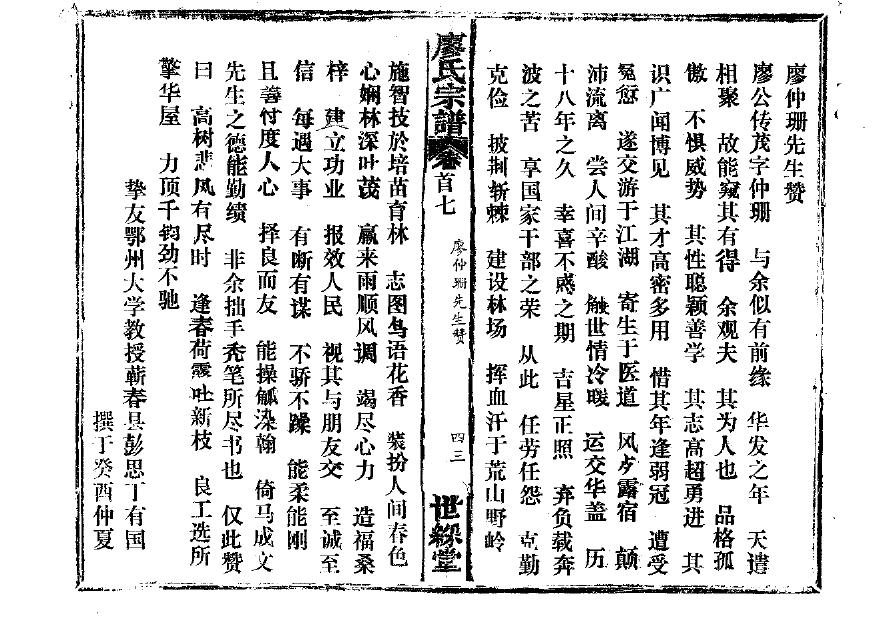 廖仲珊先生赞
廖公传茂字仲珊　与余似有前缘　华发之年　天遣
相聚　故能窥其有得　余观夫　其为人也　品格孤
傲　不惧威势　其性聪颖善学　其志高超勇进　其
识广闻博见　其才高密多用　惜其年逢弱冠　遭受
冤愆　遂交游于江湖　寄生于医道　风歺露宿　颠
沛流离　尝人间辛酸　触世情冷暖　运交华盖　历
十八年之久　幸喜不惑之期　吉星正照　弃负载奔
波之苦　享国家干部之荣　从此　任劳任怨　克勤
克俭　披荆斩棘　建设林场　挥血汗于荒山野岭
廖氏宗譜
卷首七
廖仲珊先生赞
四三
世綵堂
施智技於培苗育林　志图鸟语花香　装扮人间春色
心娴林深叶茂　赢来雨顺风调　竭尽心力　造福桑
梓　建立功业　报效人民　视其与朋友交　至诚至
信　每遇大事　有断有谋　不骄不躁　能柔能刚
且善忖度人心　择良而友　能操觚染翰　倚马成文
先生之德能勤绩　非余拙手秃笔所尽书也　仅此赞
曰　高树悲风有尽时　逢春荷露吐新枝　良工选所
擎华屋　力顶千钧劲不驰
挚友鄂州大学教授蕲春县彭思丁有国
撰于癸酉仲夏